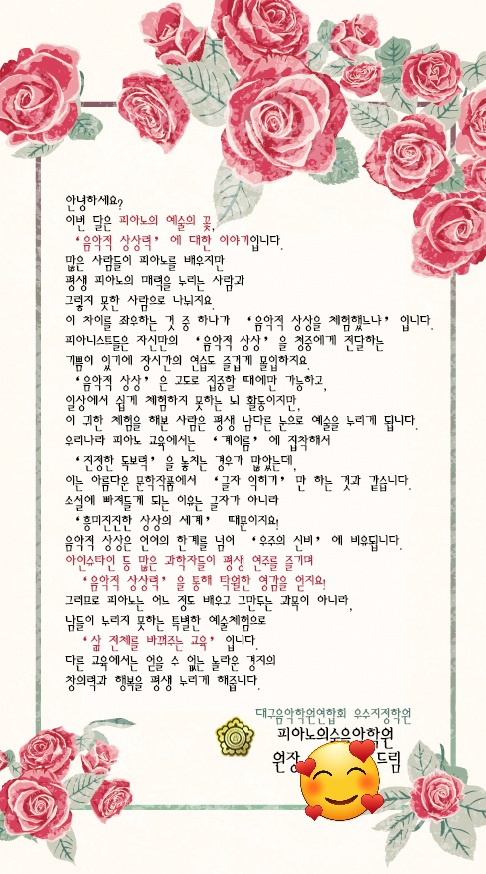 안녕하세요?
이번 달은 피아노의 예술의 꽃,
‘음악적 상상력’ 에 대한 이야기입니다.
많은 사람들이 피아노를 배우지만
평생 피아노의 매력을 누리는 사람과
그렇지 못한 사람으로 나뉘지요.
이 차이를 좌우하는 것 중 하나가 ‘음악적 상상을 체험했느냐’ 입니다.
피아니스트들은 자신만의 ‘음악적 상상’ 을 청중에게 전달하는
기쁨이 있기에 장시간의 연습도 즐겁게 몰입하지요.
‘음악적 상상’ 은 고도로 집중할 때에만 가능하고,
일상에서 쉽게 체험하지 못하는 뇌 활동이지만,
이 귀한 체험을 해본 사람은 평생 남다른 눈으로 예술을 누리게 됩니다.
우리나라 피아노 교육에서는 ‘계이름’ 에 집착해서
‘진정한 독보력’ 을 놓치는 경우가 많았는데,
이는 아름다운 문학작품에서 ‘글자 익히기’ 만 하는 것과 같습니다.
소설에 빠져들게 되는 이유는 글자가 아니라
‘흥미진진한 상상의 세계’ 때문이지요!
음악적 상상은 언어의 한계를 넘어 ‘우주의 신비’ 에 비유됩니다.
아인슈타인 등 많은 과학자들이 평생 연주를 즐기며
‘음악적 상상력’ 을 통해 탁월한 영감을 얻지요!
그러므로 피아노는 어느 정도 배우고 그만두는 과목이 아니라,
남들이 누리지 못하는 특별한 예술체험으로
‘삶 전체를 바꿔주는 교육’ 입니다.
다른 교육에서는 얻을 수 없는 놀라운 경지의
창의력과 행복을 평생 누리게 해줍니다.
대구음악학원연합회 우수지정학원
피아노의숲음악학원
원장 드림